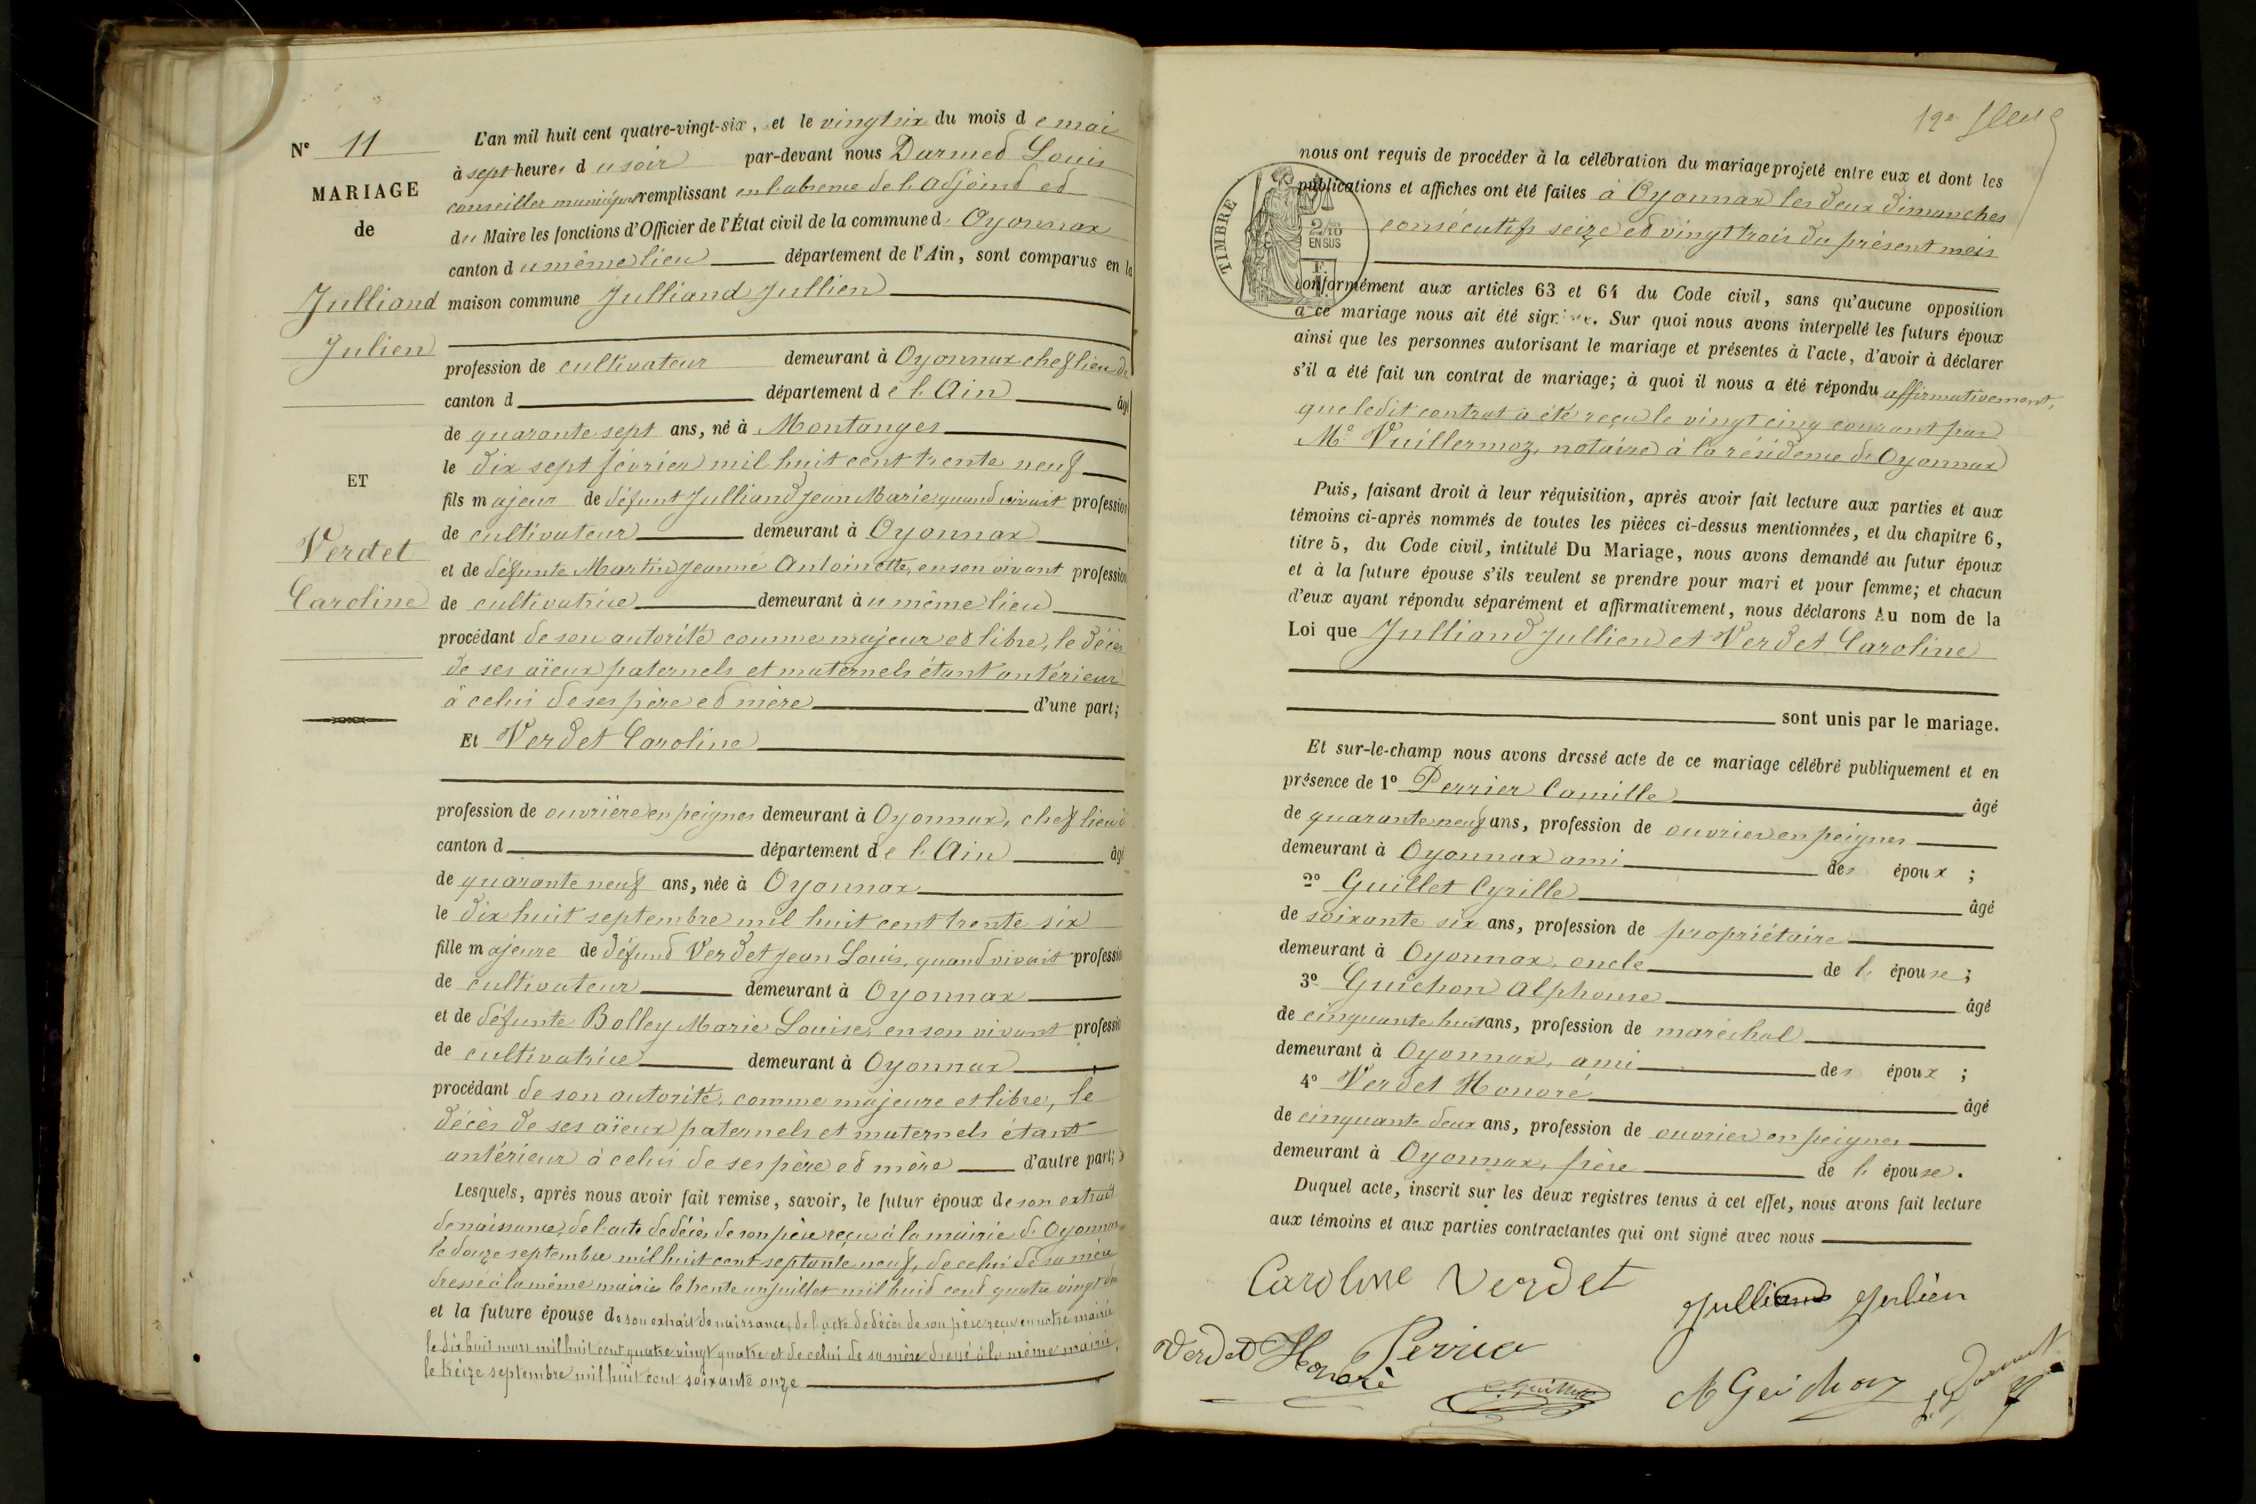 N° 11
MARIAGE
de
Julliand
Julien
ET
Verdet
Caroline
L'an mil huit cent quatre-vingt-six, et le vingt six du mois de mai
à sept heures du soir par-devant nous Darmed Louis
conseiller municipal remplissant en l'absence de l'adjoint et
du Maire les fonctions d'Officier de l'État civil de la commune d'Oyonnax
canton du même lieu département de l'Ain, sont comparus en la
maison commune Julliand Jullien
profession de cultivateur demeurant à Oyonnax chef lieu de
canton d département de l'Ain âgé
de quarante sept ans, né à Montanges
le dix sept février mil huit cent trente neuf
fils majeur de défunt Julliand Jean Marie, quand vivait profession
de cultivateur demeurant à Oyonnax
et de défunte Martin Jeanne Antoinette, en son vivant profession
de cultivatrice demeurant au même lieu
procédant de son autorité comme majeur et libre, le décès
de ses aïeux paternels et maternels étant antérieur
à celui de ses père et mère d'une part;
Et Verdet Caroline
profession de ouvrière en peignes demeurant à Oyonnax, chef lieu de
canton d département de l'Ain âgé
de quarante neuf ans, née à Oyonnax
le dix huit septembre mil huit cent trente six
fille majeure de défund Verdet Jean Louis, quand vivait profession
de cultivateur demeurant à Oyonnax
et de défunte Bolley Marie Louise, en son vivant profession
de cultivatrice demeurant à Oyonnax
procédant de son autorité, comme majeure et libre, le
décès de ses aïeux paternels et maternels étant
antérieur à celui de ses père et mère d'autre part;
Lesquels, après nous avoir fait remise, savoir, le futur époux de son extrait
de naissance, de l'acte de décès de son père reçu à la mairie d'Oyonnax
le douze septembre mil huit cent septante neuf, de celui de sa mère
dressé à la même mairie le trente un juillet mil huit cent quatre vingt
et la future épouse de son extrait de naissance, de l'acte de décès de son père reçu en notre mairie
le dix huit mars mil huit cent quatre vingt quatre et de celui de sa mère dressé à la même mairie,
le treize septembre mil huit cent soixante onze
TIMBRE
2/10
EN SUS
nous ont requis de procéder à la célébration du mariage projeté entre eux et dont les
publications et affiches ont été faites à Oyonnax les deux dimanches
consécutifs seize et vingt trois du présent mois
conformément aux articles 63 et 64 du Code civil, sans qu'aucune opposition
à ce mariage nous ait été signifiée. Sur quoi nous avons interpellé les futurs époux
ainsi que les personnes autorisant le mariage et présentes à l'acte, d'avoir à déclarer
s'il a été fait un contrat de mariage; à quoi il nous a été répondu affirmativement,
que ledit contrat a été reçu le vingt cinq courant par
Me Vuillermoz, notaire à la résidence d'Oyonnax
Puis, faisant droit à leur réquisition, après avoir fait lecture aux parties et aux
témoins ci-après nommés de toutes les pièces ci-dessus mentionnées, et du chapitre 6,
titre 5, du Code civil, intitulé Du Mariage, nous avons demandé au futur époux
et à la future épouse s'ils veulent se prendre pour mari et pour femme; et chacun
d'eux ayant répondu séparément et affirmativement, nous déclarons Au nom de la
Loi que Julliand Jullien et Verdet Caroline
sont unis par le mariage.
Et sur-le-champ nous avons dressé acte de ce mariage célébré publiquement et en
présence de 1° Perrier Camille âgé
de quarante neuf ans, profession de ouvrier en peignes
demeurant à Oyonnax ami des époux;
2° Guillet Cyrille âgé
de soixante six ans, profession de propriétaire
demeurant à Oyonnax, oncle de l'épouse;
3° Guichon Alphonse âgé
de cinquante huit ans, profession de maréchal
demeurant à Oyonnax, ami des époux;
4° Verdet Honoré âgé
de cinquante deux ans, profession de ouvrier en peignes
demeurant à Oyonnax, frère de l'épouse.
Duquel acte, inscrit sur les deux registres tenus à cet effet, nous avons fait lecture
aux témoins et aux parties contractantes qui ont signé avec nous
Caroline Verdet
Julliand Julien
Verdet Honoré
Perrier
Guillet
A Guichon